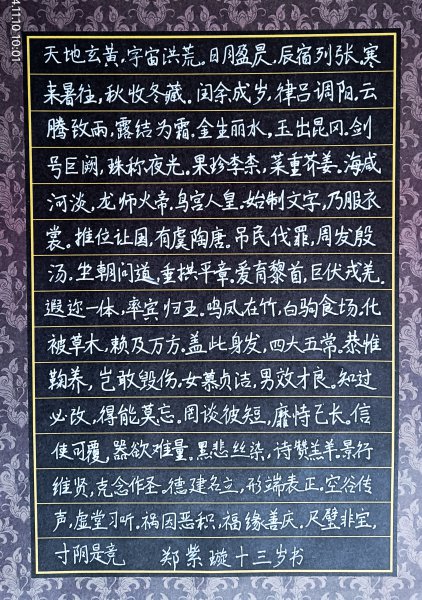 天地玄黄，宇宙洪荒。日月盈昃，辰宿列张。寒
来暑往，秋收冬藏。闰余成岁，律吕调阳。云
腾致雨，露结为霜。金生丽水，玉出昆冈。剑
号巨阙，珠称夜光。果珍李柰，菜重芥姜。海咸
河淡，龙师火帝。鸟官人皇。始制文字，乃服衣
裳。推位让国，有虞陶唐。吊民伐罪，周发殷
汤。坐朝问道，垂拱平章。爱育黎首，臣伏戎羌。
遐迩一体，率宾归王。鸣凤在竹，白驹食场。化
被草木，赖及万方。盖此身发，四大五常。恭惟
鞠养，岂敢毁伤。女慕贞洁，男效才良。知过
必改，得能莫忘。罔谈彼短，靡恃己长。信
使可覆，器欲难量。墨悲丝染，诗赞羔羊。景行
维贤，克念作圣。德建名立，形端表正。空谷传
声，虚堂习听。祸因恶积，福缘善庆。尺璧非宝，
寸阴是竞 郑紫璇十三岁书